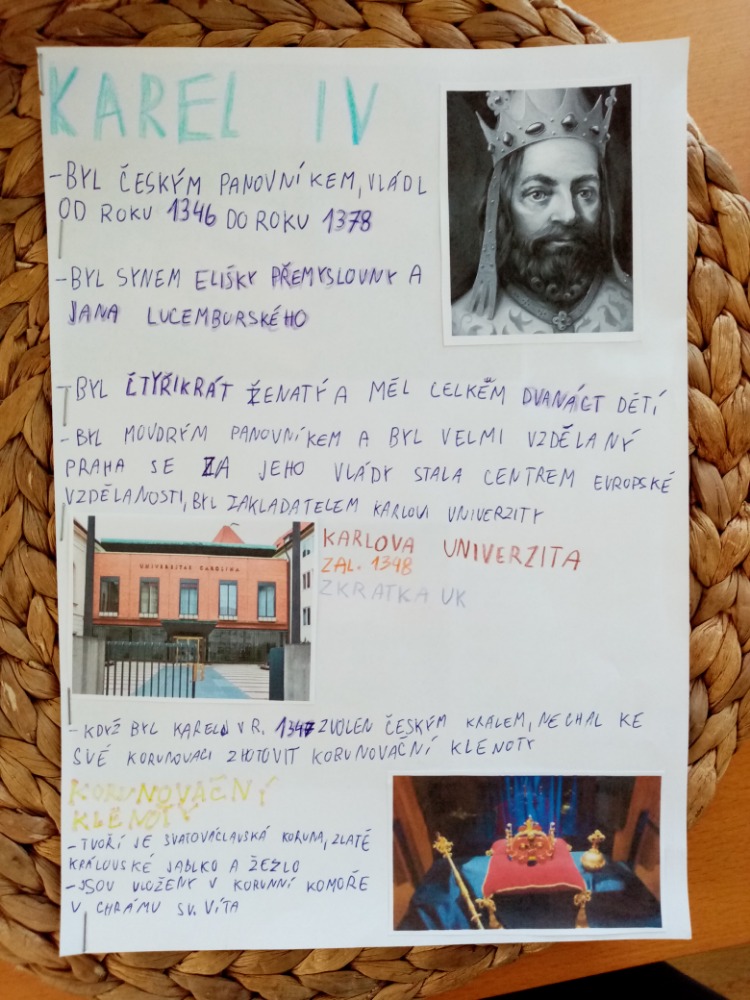 KAREL IV
-BYL ČESKÝM PANOVNÍKEM, VLÁDL
OD ROKU 1346 DO ROKU 1378
-BYL SYNEM ELIŠKY PŘEMYSLOVNY A
JANA LUCEMBURSKÉHO
-BYL ČTYŘIKRÁT ŽENATÝ A MĚL CELKEM DVANÁCT DĚTÍ
-BYL MOUDRÝM PANOVNÍKEM A BYL VELMI VZDĚLANÝ
PRAHA SE ZA JEHO VLÁDY STALA CENTREM EVROPSKÉ
VZDĚLANOSTI, BYL ZAKLADATELEM KARLOVI UNIVERZITY
UNIVERSITAS CAROLINA
KARLOVA UNIVERZITA
ZAL. 1348
ZKRATKA UK
-KDYŽ BYL KAREL V R. 1347 ZVOLEN ČESKÝM KRÁLEM, NECHAL KE
SVÉ KORUNOVACI ZHOTOVIT KORUNOVAČNÍ KLENOTY
KORUNOVAČNÝ
KLENOTY
-TVOŘÍ JE SVATOVÁCLAVSKÁ KORUNA, ZLATÉ
KRÁLOVSKÉ JABLKO A ŽEZLO
-JSOU ULOŽENY V KORUNNÍ KOMOŘE
V CHRÁMU SV. VÍTA